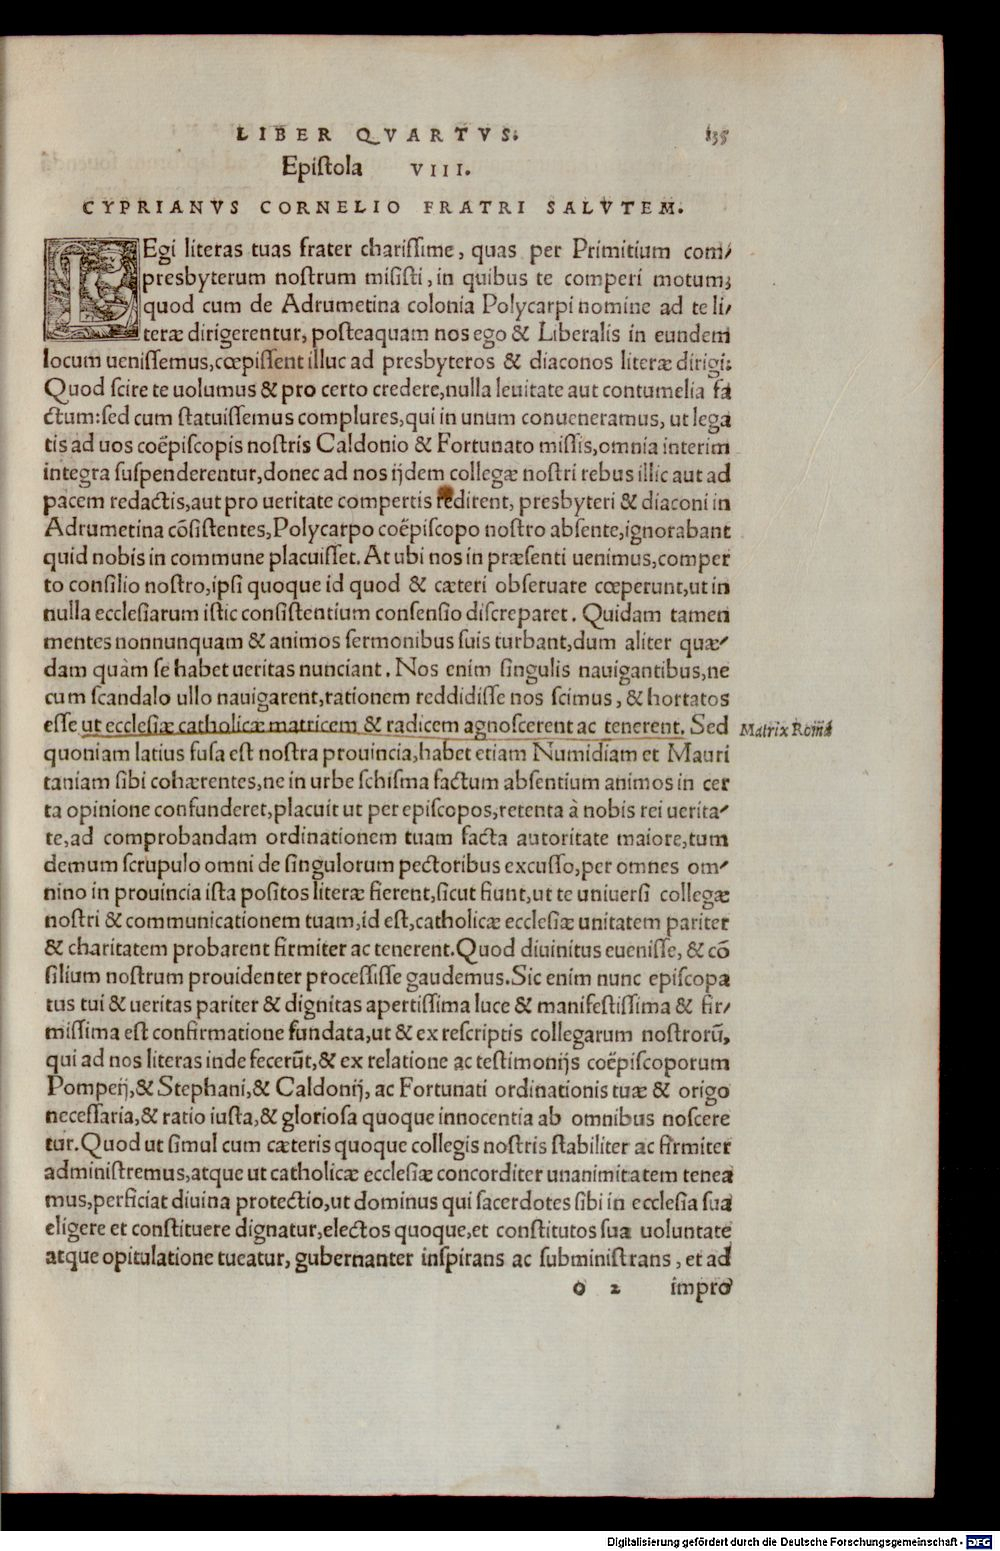 LIBER QVARTVS. 135
Epistola VIII.
CYPRIANVS CORNELIO FRATRI SALVTEM.
LEgi literas tuas frater charissime, quas per Primitium com/
presbyterum nostrum misisti, in quibus te comperi motum;
quod cum de Adrumetina colonia Polycarpi nomine ad te li/
teræ dirigerentur, posteaquam nos ego & Liberalis in eundem
locum uenissemus, cœpissent illuc ad presbyteros & diaconos literæ dirigi:
Quod scire te uolumus & pro certo credere, nulla leuitate aut contumelia fa
ctum: sed cum statuissemus complures, qui in unum conueneramus, ut lega
tis ad uos coëpiscopis nostris Caldonio & Fortunato missis, omnia interim
integra suspenderentur, donec ad nos ijdem collegæ nostri rebus illic aut ad
pacem redactis, aut pro ueritate compertis redirent, presbyteri & diaconi in
Adrumetina cõsistentes, Polycarpo coëpiscopo nostro absente, ignorabant
quid nobis in commune placuisset. At ubi nos in præsenti uenimus, comper
to consilio nostro, ipsi quoque id quod & cæteri obseruare cœperunt, ut in
nulla ecclesiarum istic consistentium consensio discreparet. Quidam tamen
mentes nonnunquam & animos sermonibus suis turbant, dum aliter quæ/
dam quàm se habet ueritas nunciant. Nos enim singulis nauigantibus, ne
cum scandalo ullo nauigarent, rationem reddidisse nos scimus, & hortatos
esse ut ecclesiæ catholicæ matricem & radicem agnoscerent ac tenerent. Sed Matrix Romã
quoniam latius fusa est nostra prouincia, habet etiam Numidiam et Mauri
taniam sibi cohærentes, ne in urbe schisma factum absentium animos in cer
ta opinione confunderet, placuit ut per episcopos, retenta à nobis rei uerita/
te, ad comprobandam ordinationem tuam facta autoritate maiore, tum
demum scrupulo omni de singulorum pectoribus excusso, per omnes om/
nino in prouincia ista positos literæ fierent, sicut fiunt, ut te uniuersi collegæ
nostri & communicationem tuam, id est, catholicæ ecclesiæ unitatem pariter
& charitatem probarent firmiter ac tenerent. Quod diuinitus euenisse, & cõ
silium nostrum prouidenter processisse gaudemus. Sic enim nunc episcopa
tus tui & ueritas pariter & dignitas apertissima luce & manifestissima & fir/
missima est confirmatione fundata, ut & ex rescriptis collegarum nostrorũ,
qui ad nos literas inde fecerũt, & ex relatione ac testimonijs coëpiscoporum
Pompeij, & Stephani, & Caldonij, ac Fortunati ordinationis tuæ & origo
necessaria, & ratio iusta, & gloriosa quoque innocentia ab omnibus noscere
tur. Quod ut simul cum cæteris quoque collegis nostris stabiliter ac firmiter
administremus, atque ut catholicæ ecclesiæ concorditer unanimitatem tenea
mus, perficiat diuina protectio, ut dominus qui sacerdotes sibi in ecclesia sua
eligere et constituere dignatur, electos quoque, et constitutos sua uoluntate
atque opitulatione tueatur, gubernanter inspirans ac subministrans, et ad
o 2 impro
Digitalisierung gefördert durch die Deutsche Forschungsgemeinschaft - DFG